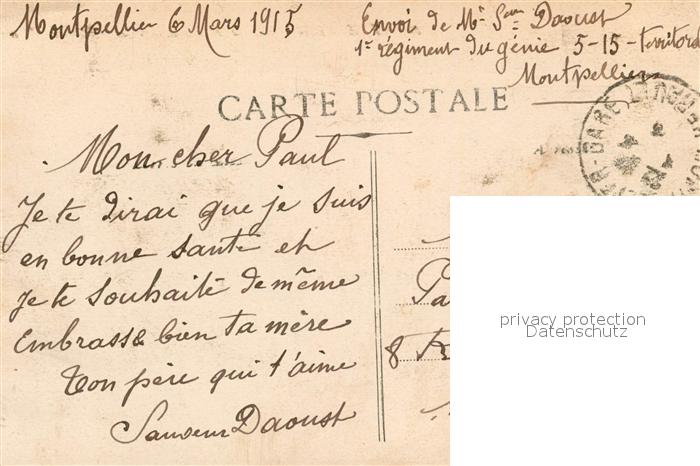 Montpellier 6 Mars 1915
Envoi de Mr Sauveur Daoust
1er régiment du génie 5-15-territorial
Montpellier
CARTE POSTALE
Mon cher Paul
Je te dirai que je suis
en bonne santé et
Je te souhaite de même
Embrasse bien ta mère
Ton père qui t'aime
Sauveur Daoust
Pa
8
privacy protection
Datenschutz